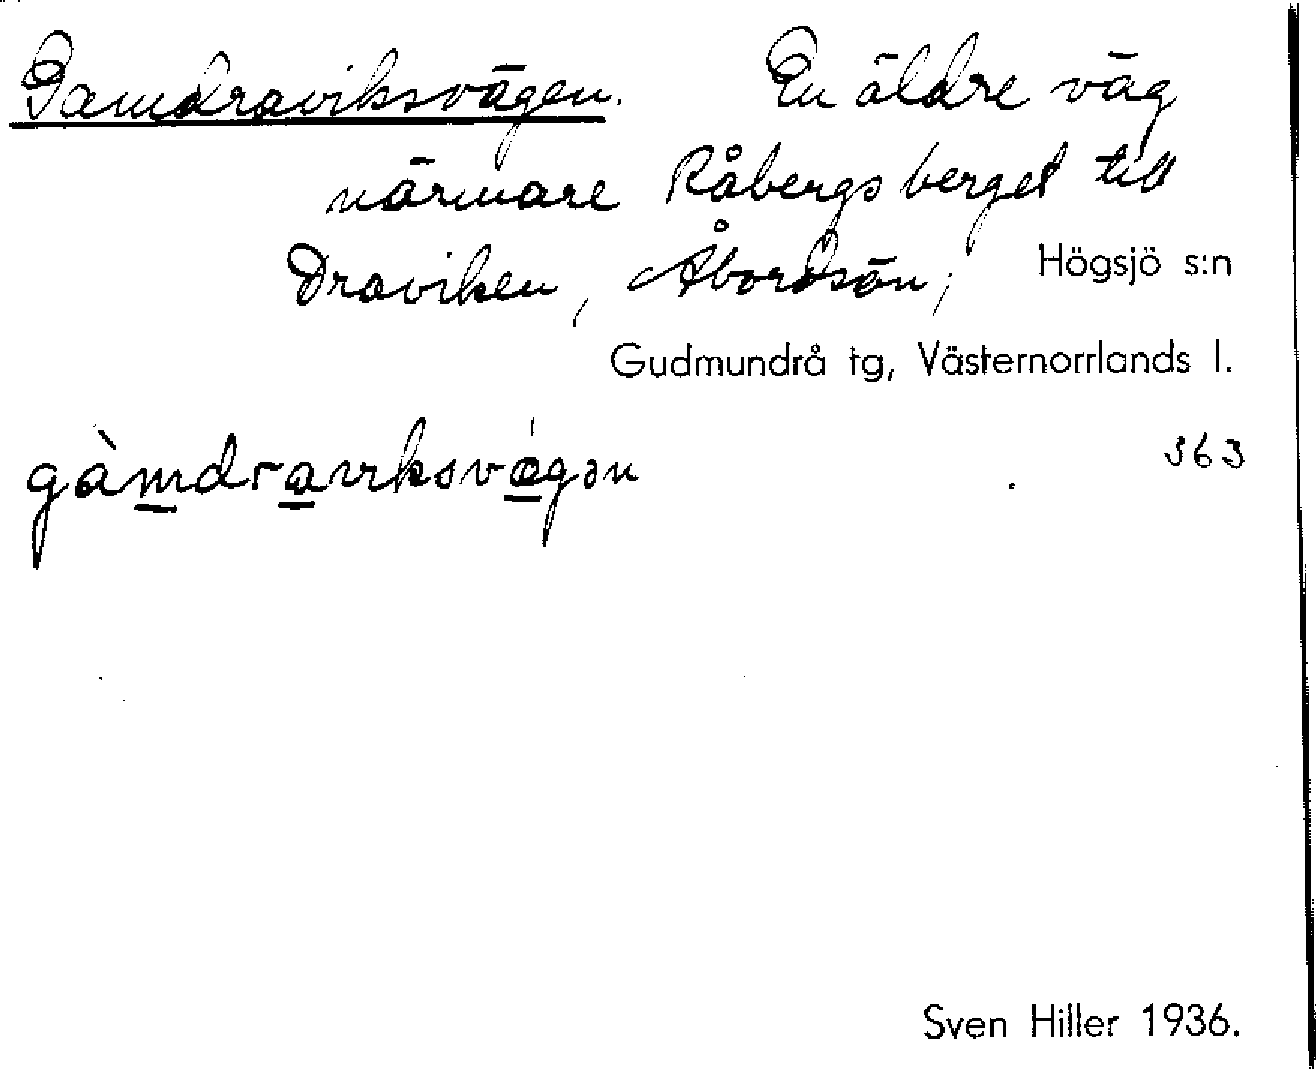 Gamdraviksvägen. En äldre väg
närmare Råbergsberget till
Draviken, Åbordsön, Högsjö s:n
Gudmundrå tg, Västernorrlands l.
gàmdravıksvǽgən 363
Sven Hiller 1936.